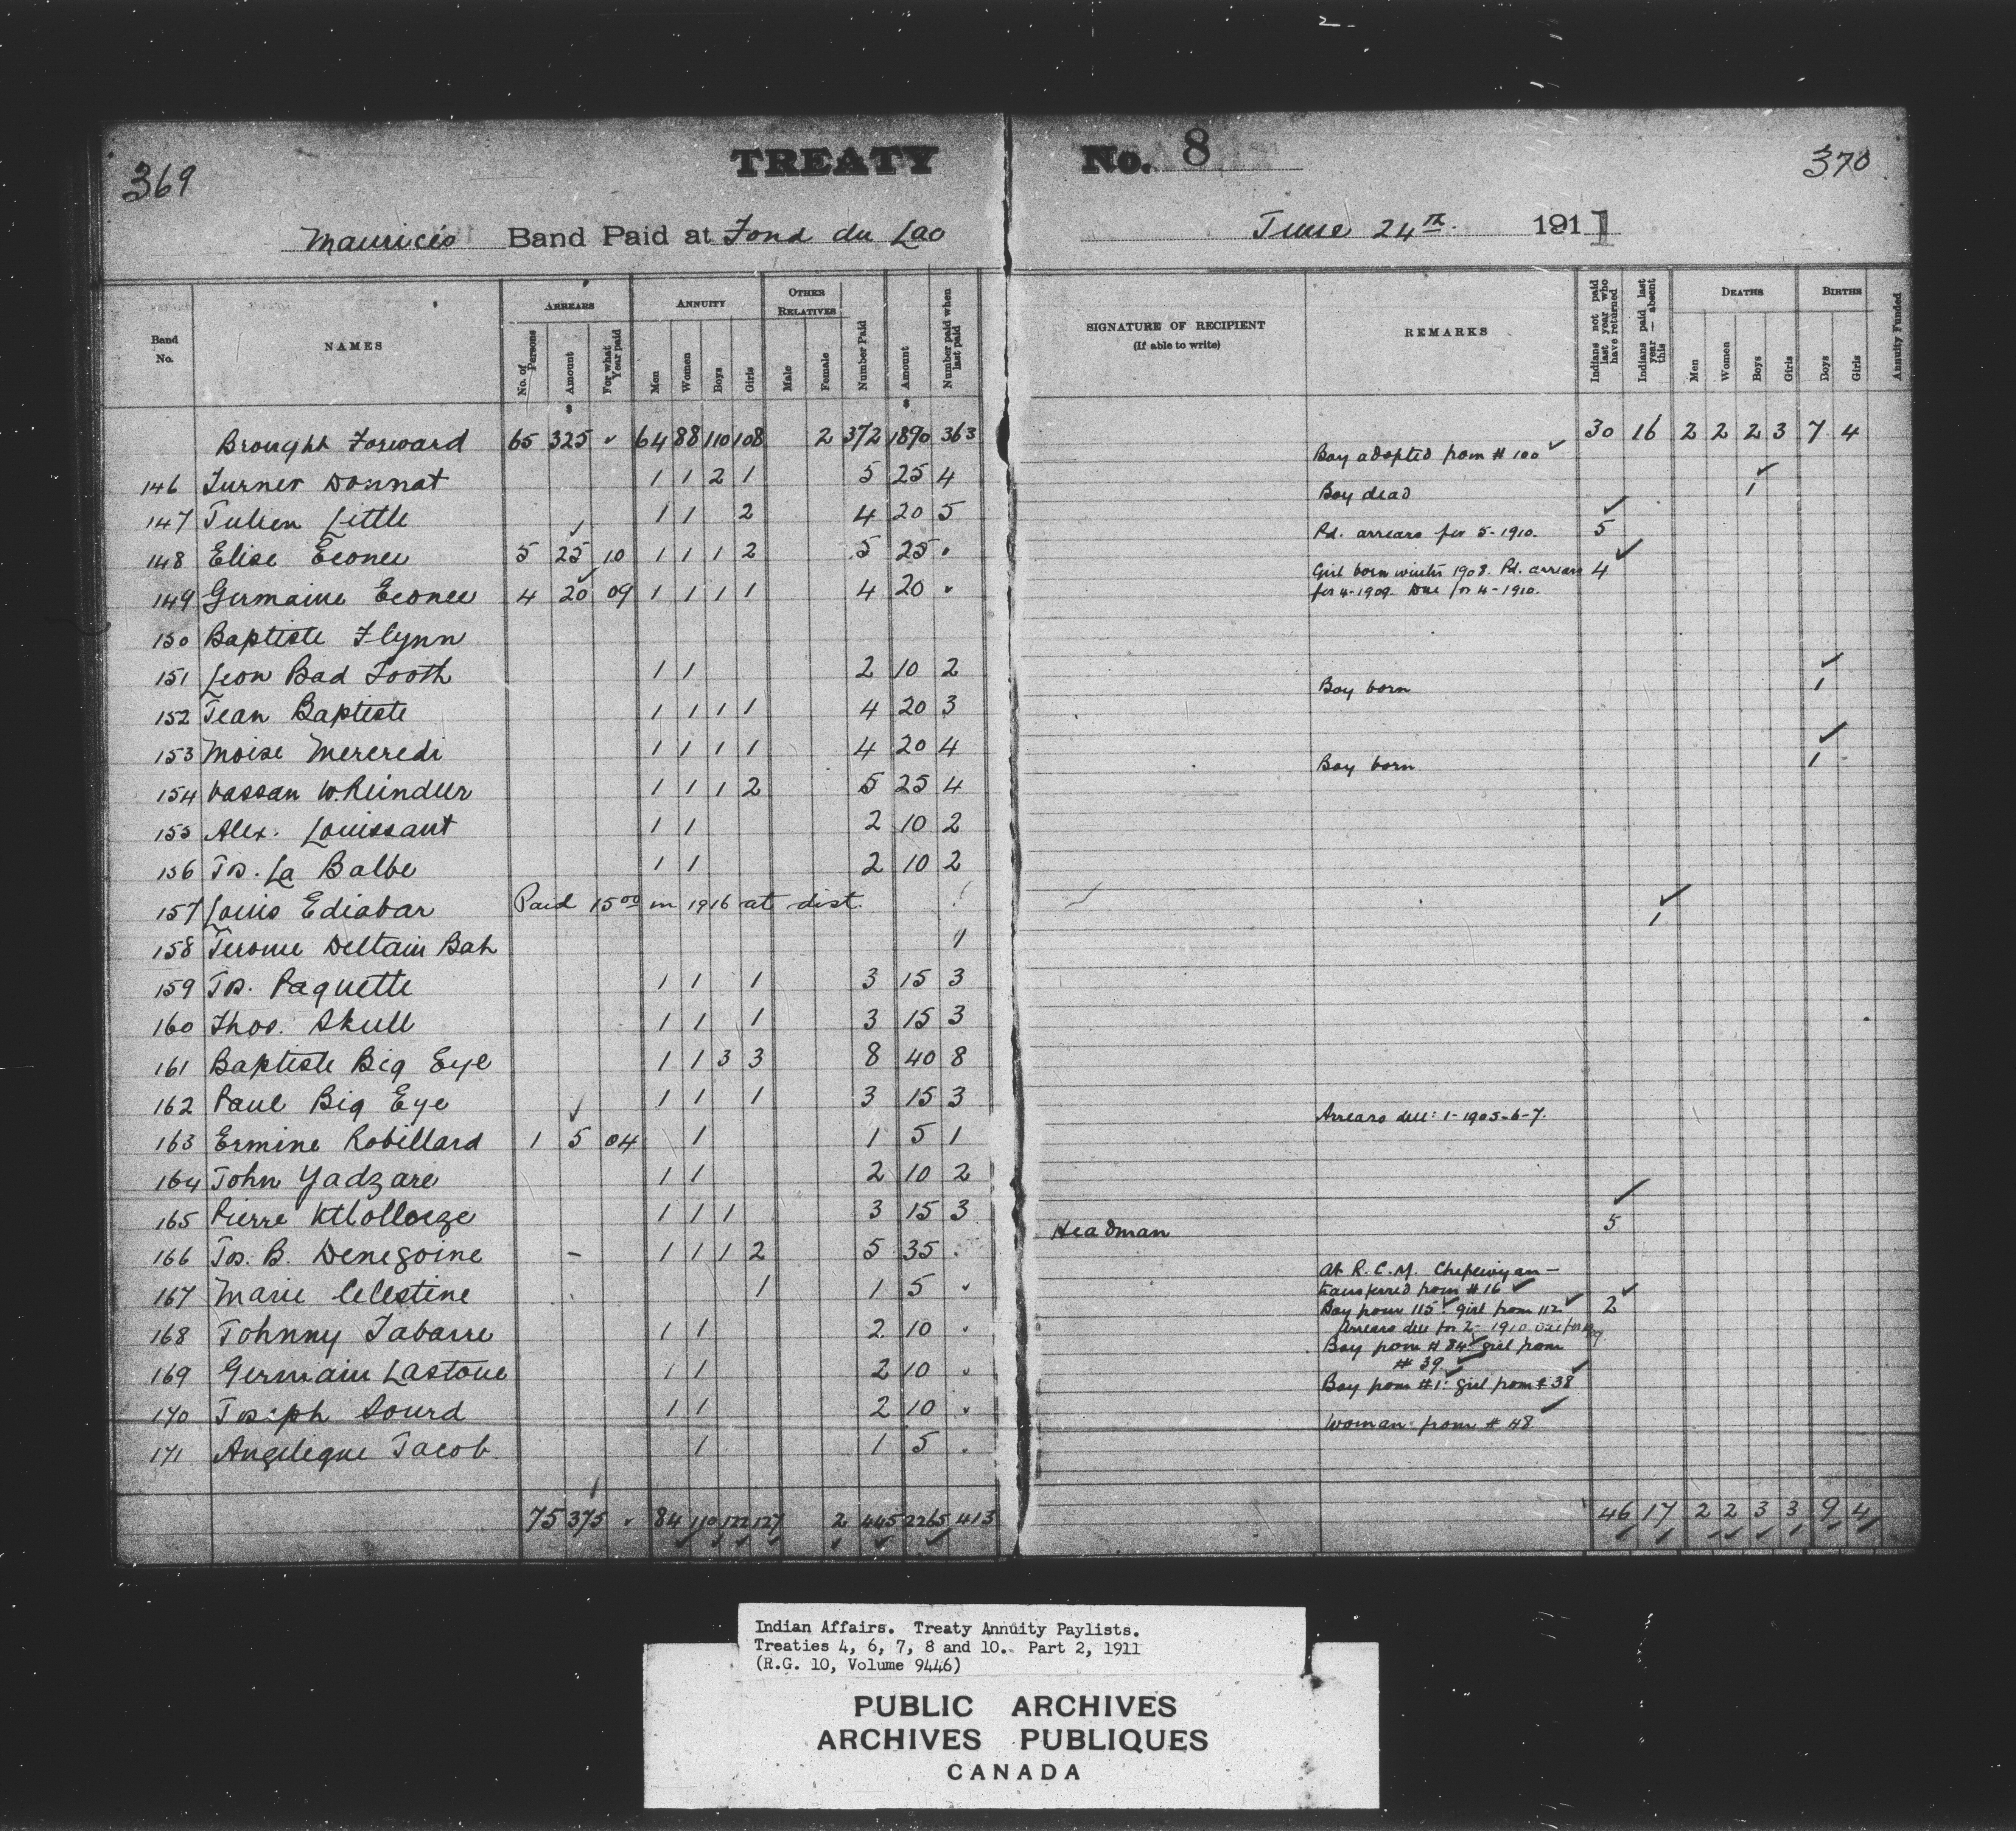 2
369
TREATY No. 8
370
Maurice's Band Paid at Fond du Lac June 24th. 1911
Band No. NAMES ARREARS No. of Persons Amount For what Year paid ANNUITY Men Women Boys Girls OTHER RELATIVES Male Female Number Paid Amount Number paid when last paid SIGNATURE OF RECIPIENT (If able to write) REMARKS Indians not paid last year who have returned Indians paid last year — absent this DEATHS Men Women Boys Girls BIRTHS Boys Girls Annuity Funded
Brought Forward 65 325 64 88 110 108 2 372 1890 363 30 16 2 2 2 3 7 4
146 Turner Donnat 1 1 2 1 5 25 4 Boy adopted from # 100
147 Julien Little 1 1 2 4 20 5 Boy dead 1
148 Elise Econee 5 25 10 1 1 1 2 5 25 Pd. arrears for 5-1910. 5
149 Germaine Econee 4 20 09 1 1 1 1 4 20 Girl born winter 1908. Pd. arrears 4
for 4-1909. Due for 4-1910.
150 Baptiste Flynn
151 Leon Bad Tooth 1 1 2 10 2
152 Jean Baptiste 1 1 1 1 4 20 3 Boy born 1
153 Moise Mercredi 1 1 1 1 4 20 4
154 Vassan W. Reindeer 1 1 1 2 5 25 4 Boy born 1
155 Alex. Louissant 1 1 2 10 2
156 Jos. La Balbe 1 1 2 10 2
157 Louis Ediabar Paid 15 00 in 1916 at dist.
158 Jerome Deltain Bah 1 1
159 Jos. Paquette 1 1 1 3 15 3
160 Thos. Skull 1 1 1 3 15 3
161 Baptiste Big Eye 1 1 3 3 8 40 8
162 Paul Big Eye 1 1 1 3 15 3
163 Ermine Robillard 1 5 04 1 1 5 1 Arrears due: 1-1905-6-7.
164 John Yadzare 1 1 2 10 2
165 Pierre Ktholloeze 1 1 1 3 15 3
166 Jos. B. Denegoine - 1 1 1 2 5 35 Headman 5
167 Marie Celestine 1 1 5 At R.C.M. Chipewyan -
transferred from # 16
168 Johnny Tabarre 1 1 2 10 Boy from 115. girl from 112 2
Arrears due for 2-1910 Due for 09
169 Germain Lastoue 1 1 2 10 Boy from # 84 girl from
# 39
170 Joseph Sourd 1 1 2 10 Boy from #1. girl from # 38
171 Angelique Jacob 1 1 5 Woman from # 48
75 375 84 110 122 127 2 445 2265 413 46 17 2 2 3 3 9 4
Indian Affairs. Treaty Annuity Paylists.
Treaties 4, 6, 7, 8 and 10. Part 2, 1911
(R.G. 10, Volume 9446)
PUBLIC ARCHIVES
ARCHIVES PUBLIQUES
CANADA